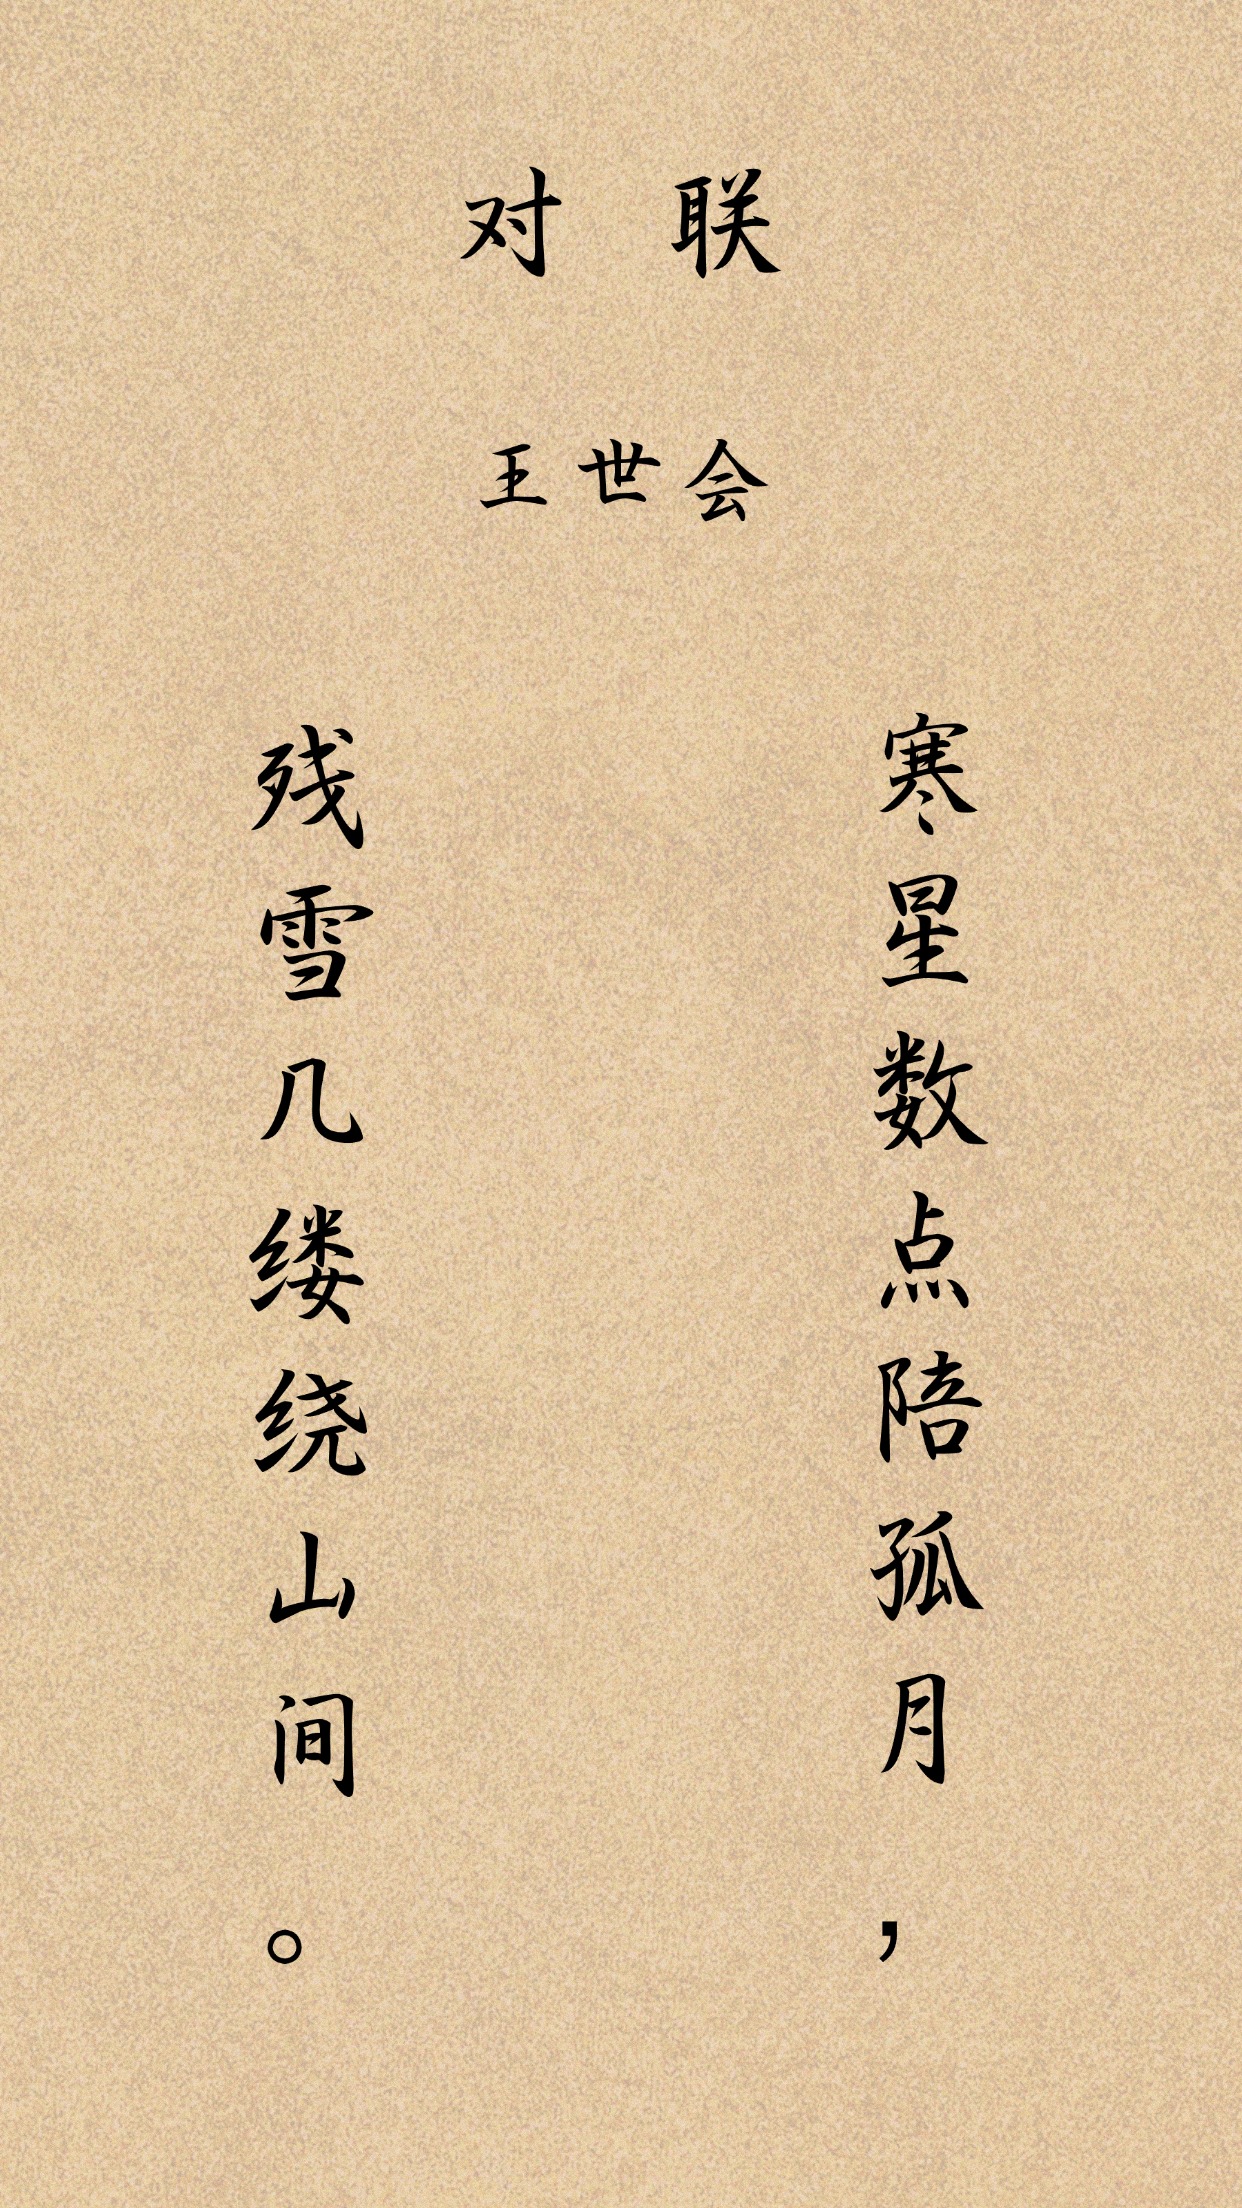 对 联
王世会
寒星数点陪孤月，
残雪几缕绕山间。